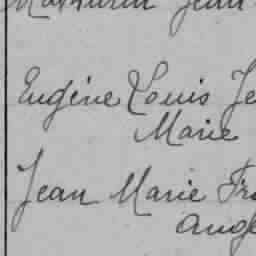 Mathurin Jean
Eugène Louis Je
Marie
Jean Marie Fra
Ange